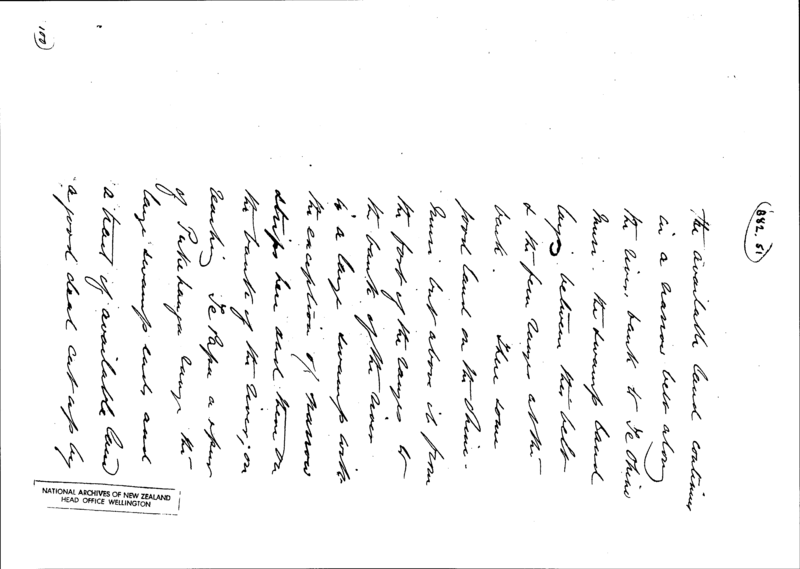 B82.51
the available land continues
in a narrow belt along
the river bank to Te Ohine
muri. the swamp land
lays between this belt
& the fern range at the
back. There some
good land on the Ohine-
muri but above it from
the foot of the ranges to
the bank of the river
is a large swamp with
the exception of narrow
strips here and there on
the bank of the river, on
reaching Te a spur
of Pukehange range the
large swamp ends and
a tract of available land
a good deal cut up by
100
NATIONAL ARCHIVES OF NEW ZEALAND
HEAD OFFICE WELLINGTON